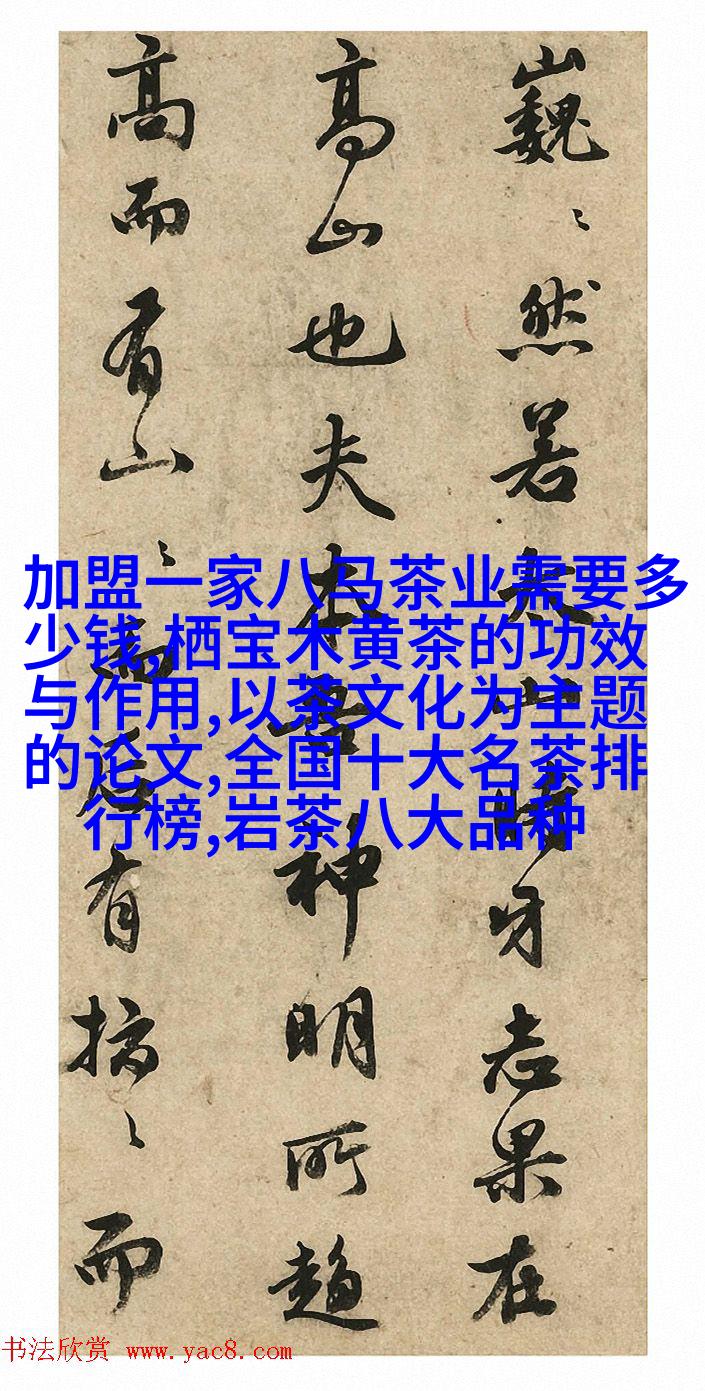 巍〻然若太山時牙志果在
高山也夫本吾神明所趨
高而有山〻而后有〻而
加盟一家八马茶业需要多
少钱,栖宝木黄茶的功效
与作用,以茶文化为主题
的论文,全国十大名茶排
行榜,岩茶八大品种
书法欣赏 www.yac8.com